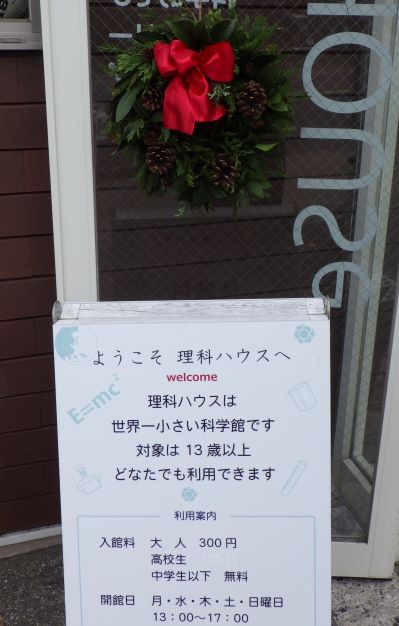 House
ようこそ 理科ハウスへ
welcome
E=mc²
理科ハウスは
世界一小さい科学館です
対象は 13 歳以上
どなたでも利用できます
利用案内
入館料 大 人 300 円
高校生 100 円
中学生以下 無料
開館日 月・水・木・土・日曜日
13:00〜17:00